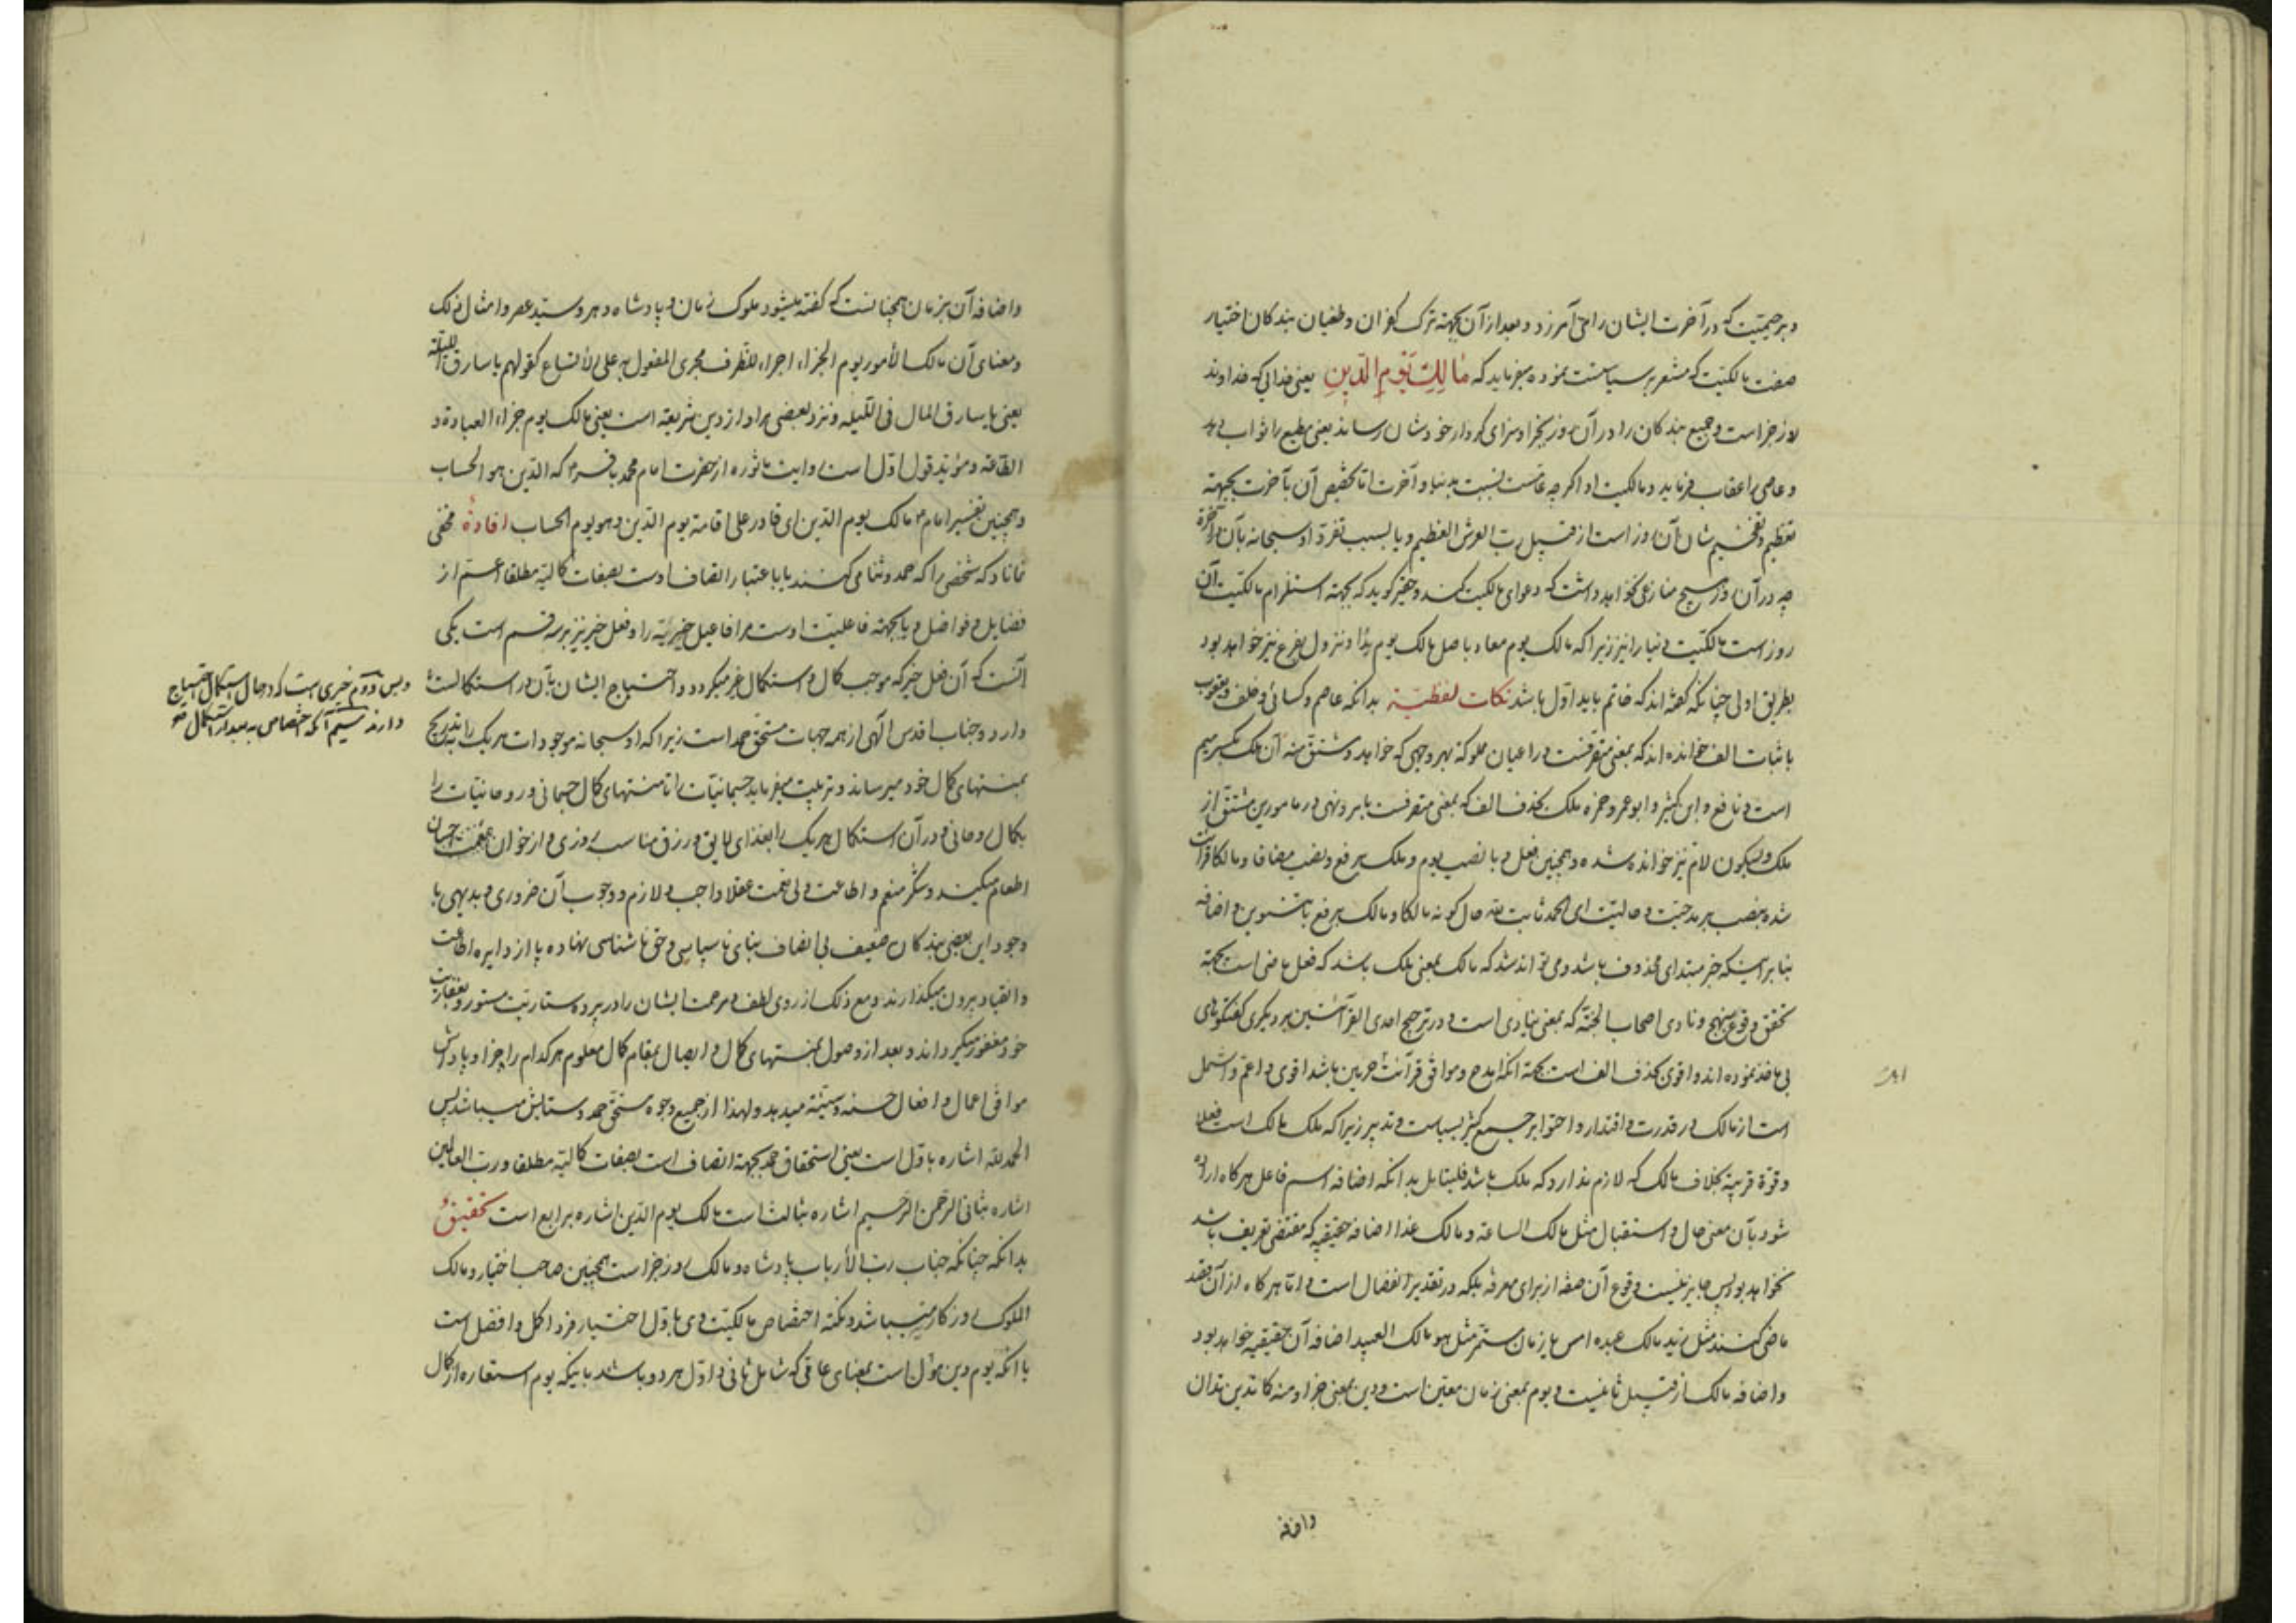 وبرحیمیت که در آخرت ایشان را می آمرزد و بعد از آن بجهته ترک کفران و طغیان بندکان اختیار
صفت مالکیّت که مشعر بر سیاستست نموده میفرماید که مَالِكِ يَوْمِ الدِّينِ یعنی خدائی که خداوند
روز جزاست و جمیع بندکان را در آن روز بجزا و سزای کردار خودشان رساند یعنی مطیع را ثواب دهد
و عاصی را عقاب فرماید و مالکیت او اکرچه عامست نسبت بدنیا و آخرت امّا تخصیص آن بآخرت بجهته
تعظیم و تفخیم شان آن روز است از قبیل ربّ العرش العظیم و یا بسبب تفرد او سبحانه بآن در آخرة
چه در آن روز هیچ منازعی نخواهد داشت که دعوای مالکیت کند و حقیر کوید که بجهته استلزام مالکیّت آن
روز است مالکیّت دنیا را نیز زیرا که مالک یوم معاد باصل مالک یوم بدا و نزول بفرع نیز خواهد بود
بطریق اولی چنانکه کفته اند که خاتم باید اوّل باشد نکات لفظیّة بدانکه عاصم و کسائی و خلف و یعقوب
باثبات الف خوانده اند که بمعنی متصرفست در اعیان مملوکه بهر وجهی که خواهد و مشتق منه آن ملک بکسر میم
است و نافع و ابن کثیر و ابو عمرو و حمزه ملک بحذف الف که بمعنی متصرفست بامر و نهی در مامورین مشتق از
ملک و بسکون لام نیز خوانده شده و همچنین فعل و بانصب یوم و ملک برفع و نصب مضافا و مالکا قرات
شده بنصب بر مدحیّت و حالیّت ای الحمد ثابت لله حال کونه مالکا و مالک برفع با تنوین و اضافه
بنابر اینکه خبر مبتدای محذوف باشد و می تواند شد که مالک بمعنی ملک باشد که فعل ماضی است بجهته
تحقق وقوع بنهج و نادی اصحاب الجنّة که بمعنی ینادی است و در ترجیح احدی القرآئتین بر دیکری کفتکوهای
بی ماخذ نموده اند و اقوی بحذف الف است بجهته آنکه امدح و موافق قرآئت حرمین باشد اقوی و اعم و اشمل
است از مالک در قدرت و اقتدار و احتوا بر جمیع کثیر بسیاست و تدبیر زیرا که ملک مالک است فعلا
و قوة قریبة بخلاف مالک که لازم ندارد که ملک باشد فلیتامل بدانکه اضافه اسم فاعل هرکاه اراده
شود بآن معنی حال و استقبال مثل مالک الساعة و مالک غدا اضافه حقیقیه که مقتضی تعریف باشد
نخواهد بود پس جایز نیست وقوع آن صفه از برای معرفه بلکه در تقدیر انفصال است و امّا هرکاه از آن قصد
ماضی کنند مثل زید مالک عبده امس یا زمان مستمر مثل هو مالک العبید اضافه آن حقیقیه خواهد بود
و اضافه مالک از قبیل ثانیست و یوم بمعنی زمان معیّن است و دین بمعنی جزا و منه کما تدین تدان
و اضافه
و اضافه آن بزمان همچنانست که کفته میشود ملوک زمان و پادشاه دهر و سیّد عصر و امثال ذلک
و معنای آن مالک الأمور یوم الجزاء اجراء للظرف مجری المفعول به علی الأتساع کقولهم یا سارق اللیلة
یعنی یا سارق المال فی اللّیله و نزد بعضی مراد از دین شریعة است یعنی مالک یوم جزاء العبادة و
الطاعة و مؤید قول اوّل است روایت ماثوره از حضرت امام محمد باقر ع م که الدّین هو الحساب
و همچنین تفسیر امام ع مالک یوم الدّین ای قادر علی اقامة یوم الدّین و هو یوم الحساب افادةٌ مخفی
نماناد که شخصی را که حمد و ثنا می کنند یا باعتبار اتّصاف اوست بصفات کمالیّه مطلقا اعم از
فضایل و فواضل و یا بجهته فاعلیت اوست مر افاعیل خیریّه را و فعل خیر نیز بر سه قسم است یکی
آنست که آن فعل خیر که موجب کمال و استکمال غیر میکردد و احتیاج ایشان بآن در استکمالست
وپس دوّم خیری است که در حال استکمال احتیاج
دارند سیّم آنکه اختصاص به بعد از استکمال
دارد و جناب اقدس الّهی از همه جهات مستحق حمد است زیرا که او سبحانه موجودات هریک را بتدریج
بمنتهای کمال خود میرساند و تربیت میفرماید جسمانیات را تا منتهای کمال جسمانی و روحانیات را
بکمال روحانی و در آن استکمال هریک را بغذای لایق و رزق مناسب روزی و از خوان نعمت احسان
اطعام میکند و شکر منعم و اطاعت ولی نعمت عقلا واجب و لازم و وجوب آن ضروری و بدیهی با
وجود این بعضی بندکان ضعیف بی انصاف بنای ناسپاسی و حق ناشناسی نهاده پا از دایره اطاعت
و انقیاد بیرون میکذارند و مع ذلک از روی لطف و مرحمت ایشان را در پرده ستاریّت مستور و بغفاریت
خود مغفور میکرداند و بعد از وصول بمنتهای کمال و ایصال بمقام کمال معلوم هرکدام را جزا و پاداش
موافق اعمال و افعال حسنه و سیّئه میدهد ولهذا از جمیع وجوه مستحق حمد و ستایش میباشد پس
الحمد لله اشاره باوّل است یعنی استحقاق حمد بجهته اتصاف است بصفات کمالیّه مطلقا و ربّ العالمین
اشاره بثانی الرّحمن الرّحیم اشاره بثالث است مالک یوم الدّین اشاره برابع است تحقیقٌ
بدانکه چنانکه جناب ربّ الأرباب پادشاه و مالک روز جزاست همچنین صاحب اختیار و مالک
الملوک روزکار نیز میباشد و نکته اختصاص مالکیّت وی باوّل اختیار فرد اکمل و افضل است
با آنکه یوم دین مؤل است بمعنای عامی که شامل ثانی و اوّل هردو باشد باینکه یوم استعاره از کمال